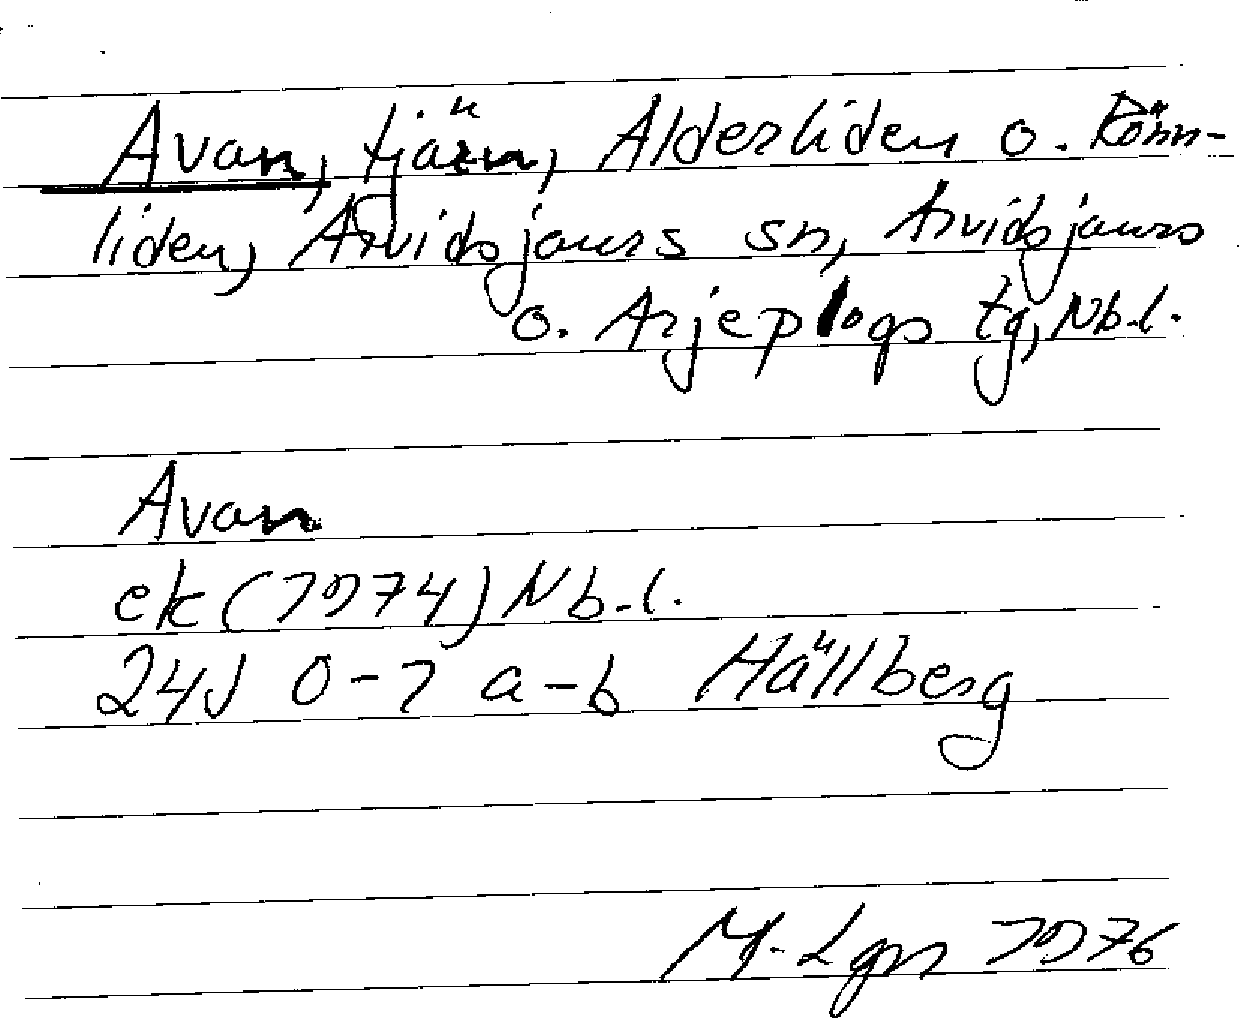 Avan, tjärn, Alderliden o. Rönn-
liden, Arvidsjaurs sn, Arvidsjaurs
o. Arjeplogs tg, Nb.l.
Avan
ek (1974) Nb.l.
24J 0-1 a-b Hällberg
M-Lgn 1976